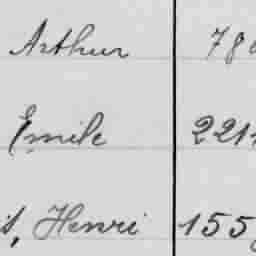 Arthur 78
Emile 221
Henri 155